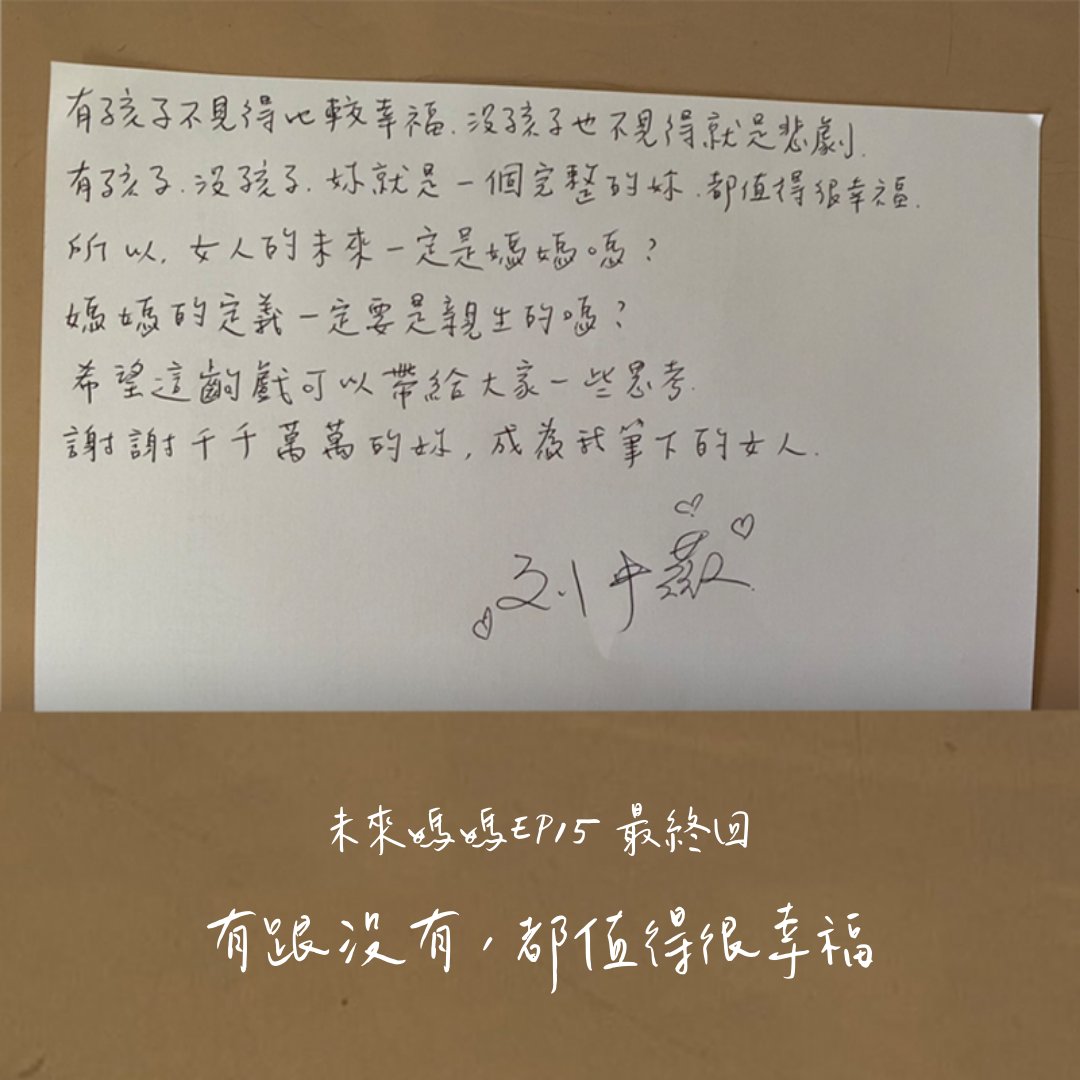 有孩子不見得比較幸福.沒孩子也不見得就是悲劇.
有孩子.沒孩子.妳就是一個完整的妳.都值得很幸福.
所以,女人的未來一定是媽媽嗎?
媽媽的定義一定要是親生的嗎?
希望這齣戲可以帶給大家一些思考.
謝謝千千萬萬的妳,成為我筆下的女人.
未來媽媽EP15 最終回
有跟沒有,都值得很幸福